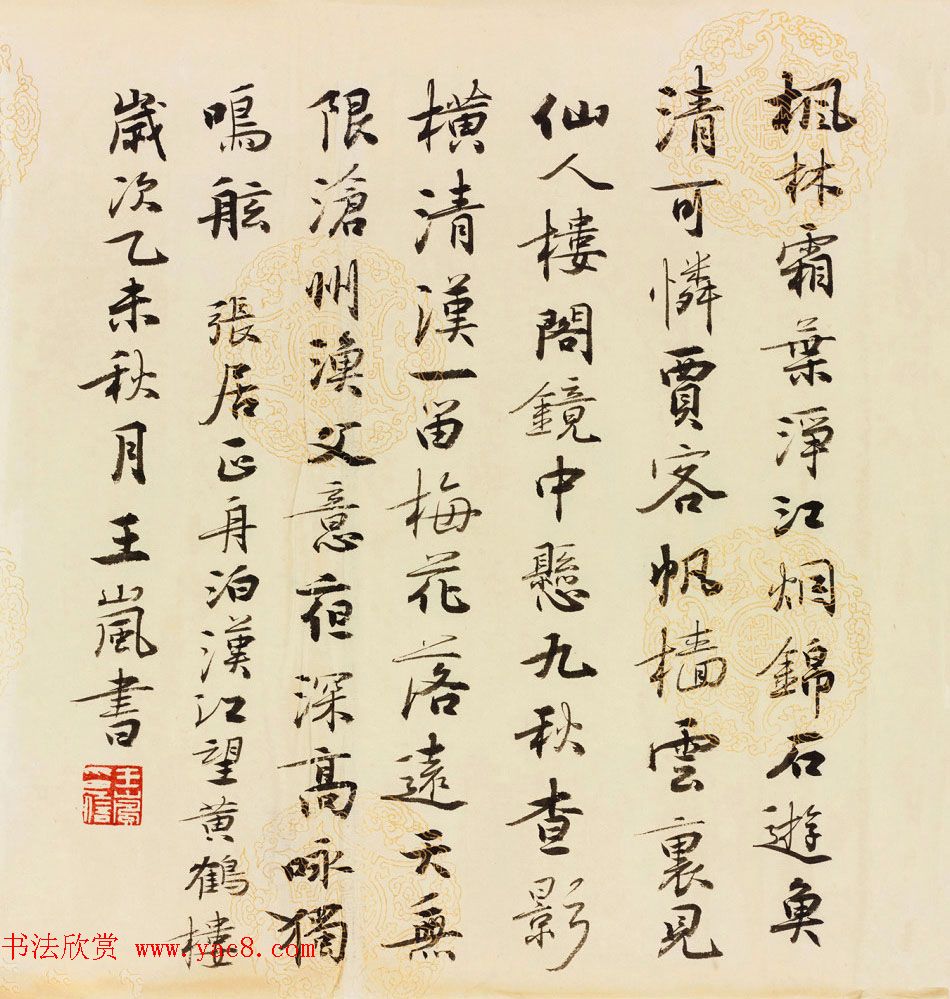 楓林霜葉淨江烟錦石遊魚
清可憐賈客帆檣雲裏見
仙人樓閣鏡中懸九秋查影
橫清漢一笛梅花落遠天無
限滄州漁父意夜深高咏獨
鳴舷 張居正舟泊漢江望黃鶴樓
歲次乙未秋月王嵐書
书法欣赏 www.yac8.com